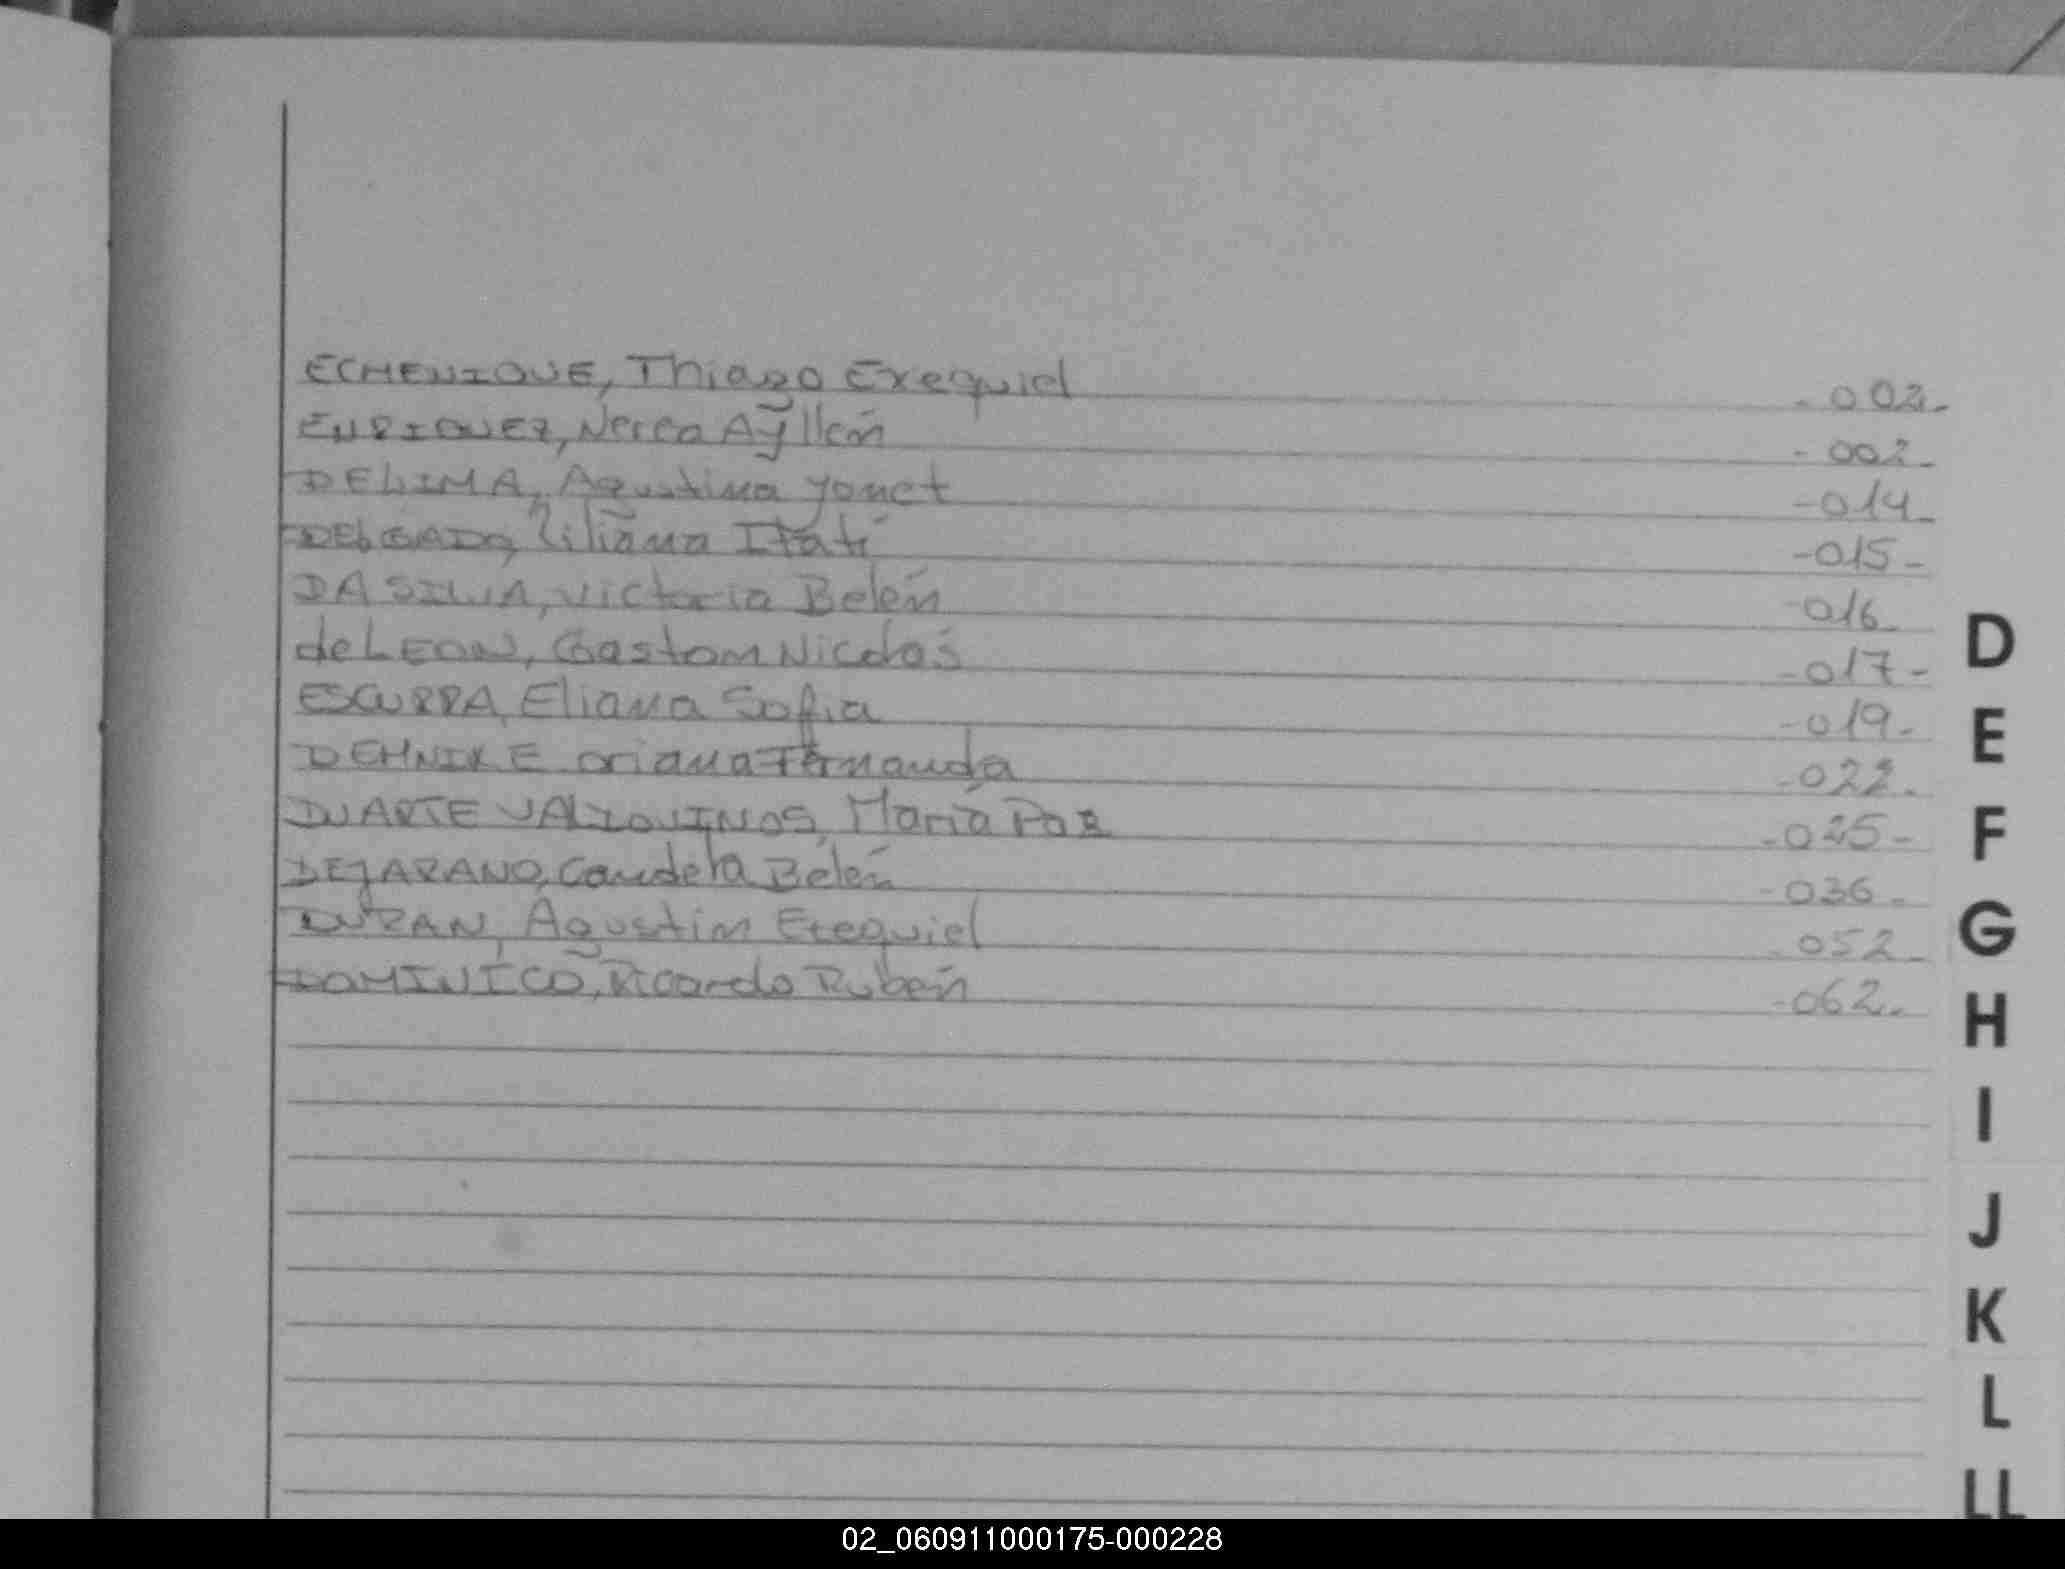 ECHENIQUE, Thiago Exequiel -002-
ENRIQUEZ, Nerea Ayllén -002-
DELIMA, Agustina Yonet -014-
DELGADO, Liliana Itatí -015-
DA SILVA, Victoria Belén -016-
de LEON, Gaston Nicolás -017-
ESCURRA, Eliana Sofia -019-
DEHNIKE oriana Fernanda -022-
DUARTE María Paz -025-
DEJARANO, Candela Belén -036-
DURAN, Agustin Exequiel 052-
DOMINICO, Ricardo Rubén -062-
D
E
F
G
H
I
J
K
L
LL
02_060911000175-000228